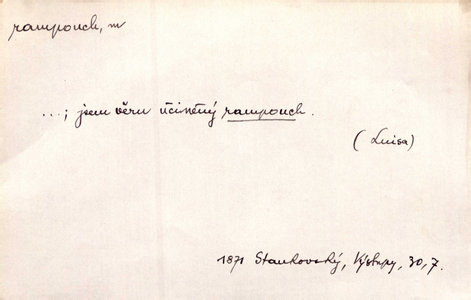 rampouch, m
...; jsem věru účiněný rampouch.
(Luisa)
1871 Stankovský, Výstupy, 30, 7.